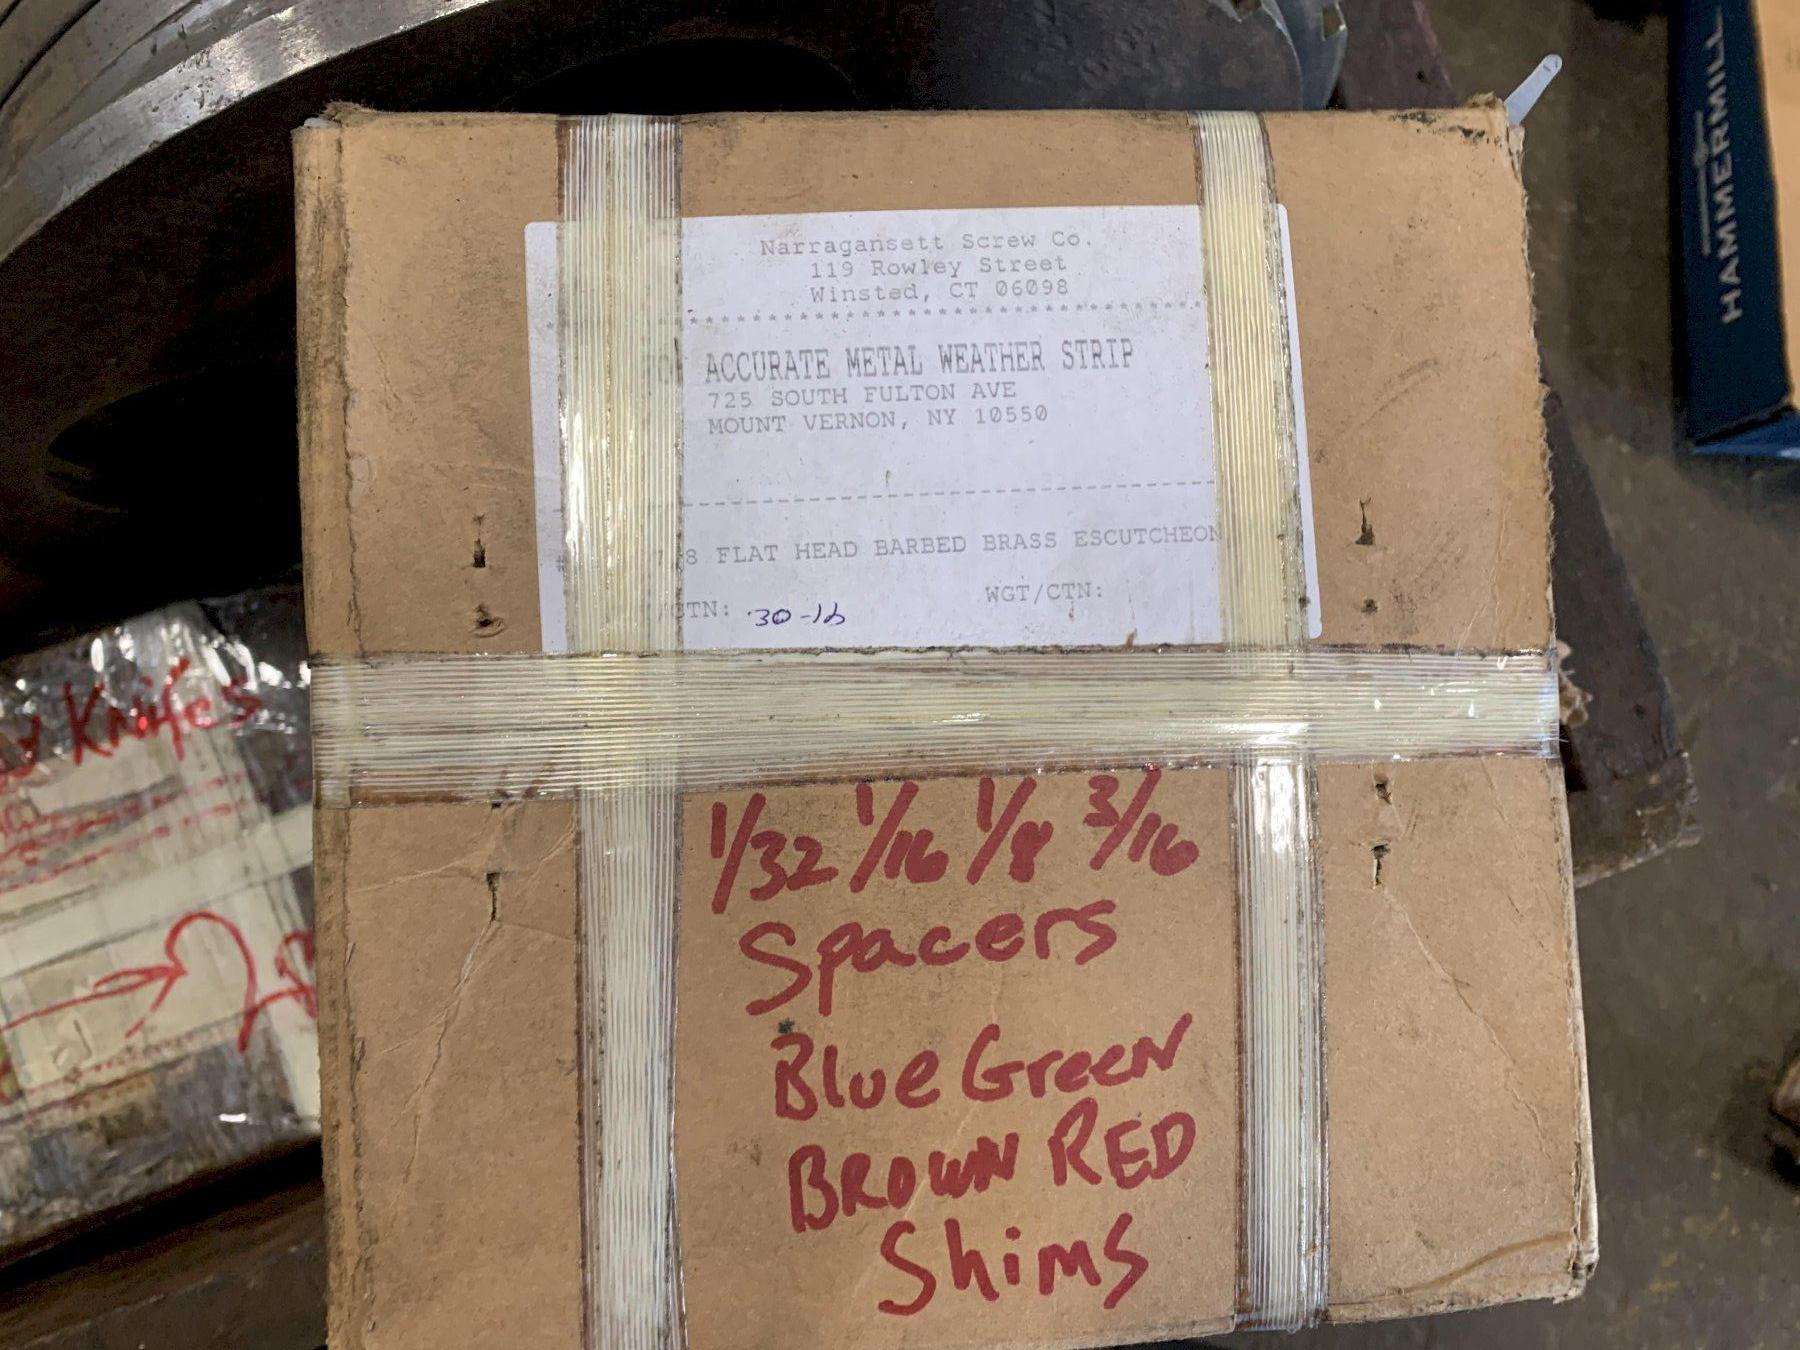 Narragansett Screw Co.
119 Rowley Street
Winsted, CT 06098
****************************
ACCURATE METAL WEATHER STRIP
725 SOUTH FULTON AVE
MOUNT VERNON, NY 10550
8 FLAT HEAD BARBED BRASS ESCUTCHEON
CTN: 30-lb WGT/CTN:
1/32 1/16 1/8 3/16
Spacers
Blue Green
BROWN RED
Shims
Knifes
HAMMERMILL